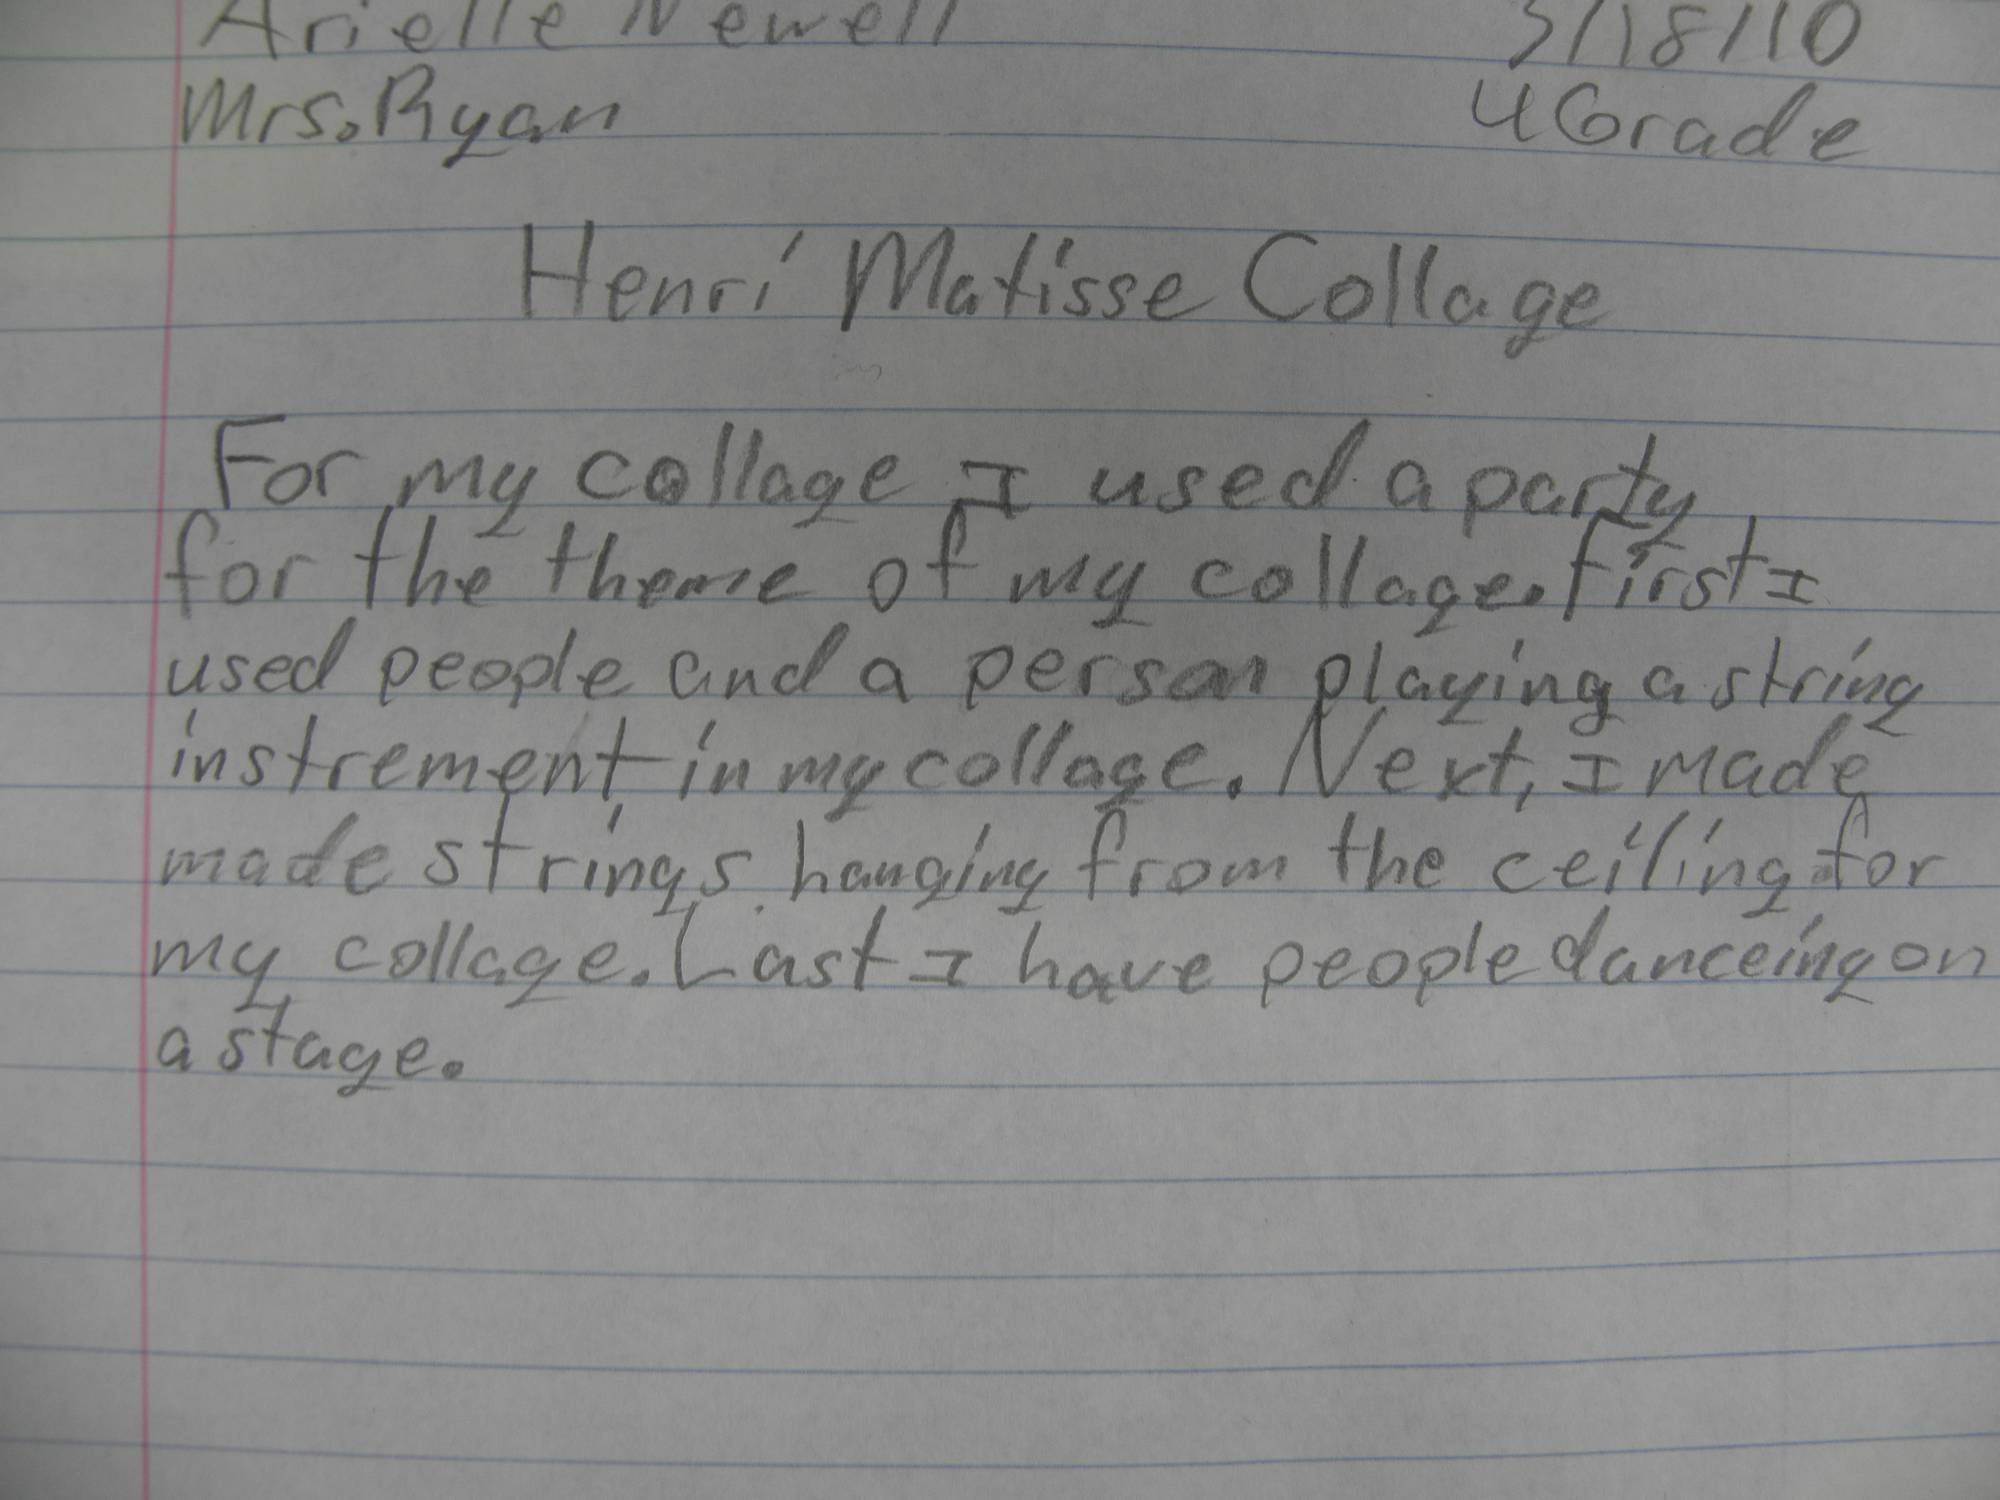 Arielle Newell 3/18/10
Mrs. Ryan 4 Grade
Henri Matisse Collage
For my collage I used a party
for the theme of my collage. First I
used people and a person playing a string
instrement in my collage. Next, I made
made strings hanging from the ceiling for
my collage. Last I have people danceing on
a stage.